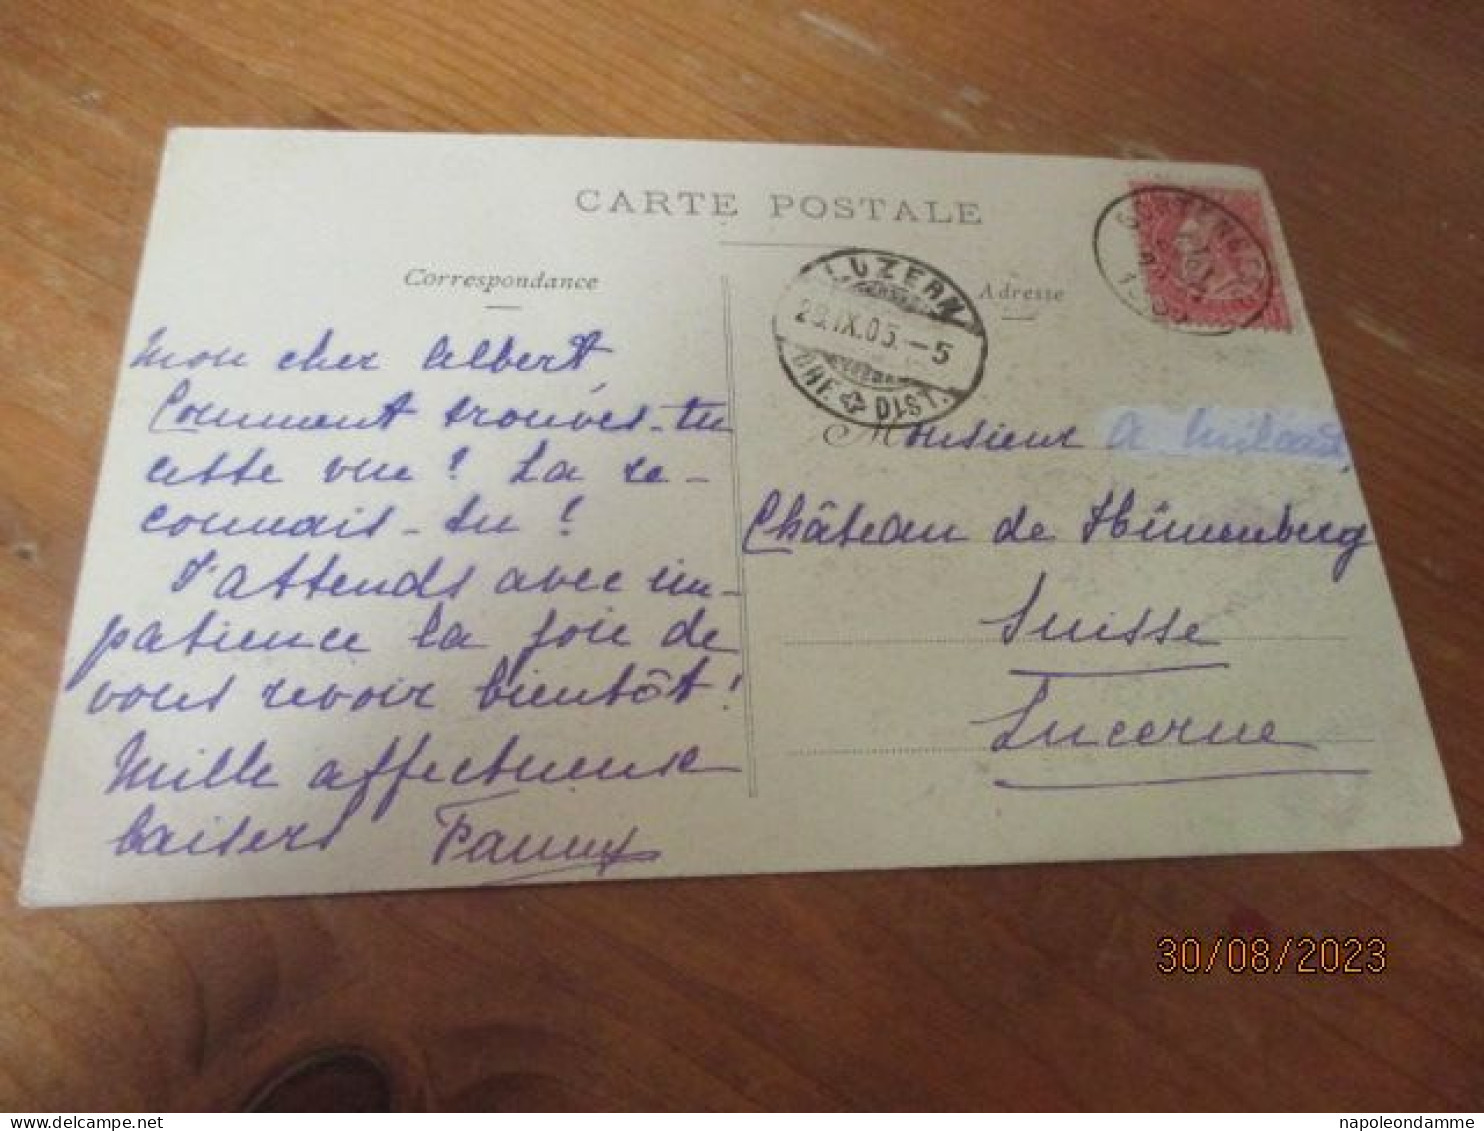 CARTE POSTALE
Correspondance
Adresse
LUZERN
29.IX.05.-5
BRF. DIST.
Mon cher Albert,
Comment trouves-tu
cette vue ? La re-
connais-tu ?
J'attends avec im-
patience la joie de
vous revoir bientôt !
Mille affectueuse
baisers Fanny
Monsieur A
Château de Hünenberg
Suisse
Lucerne
30/08/2023
napoleondamme